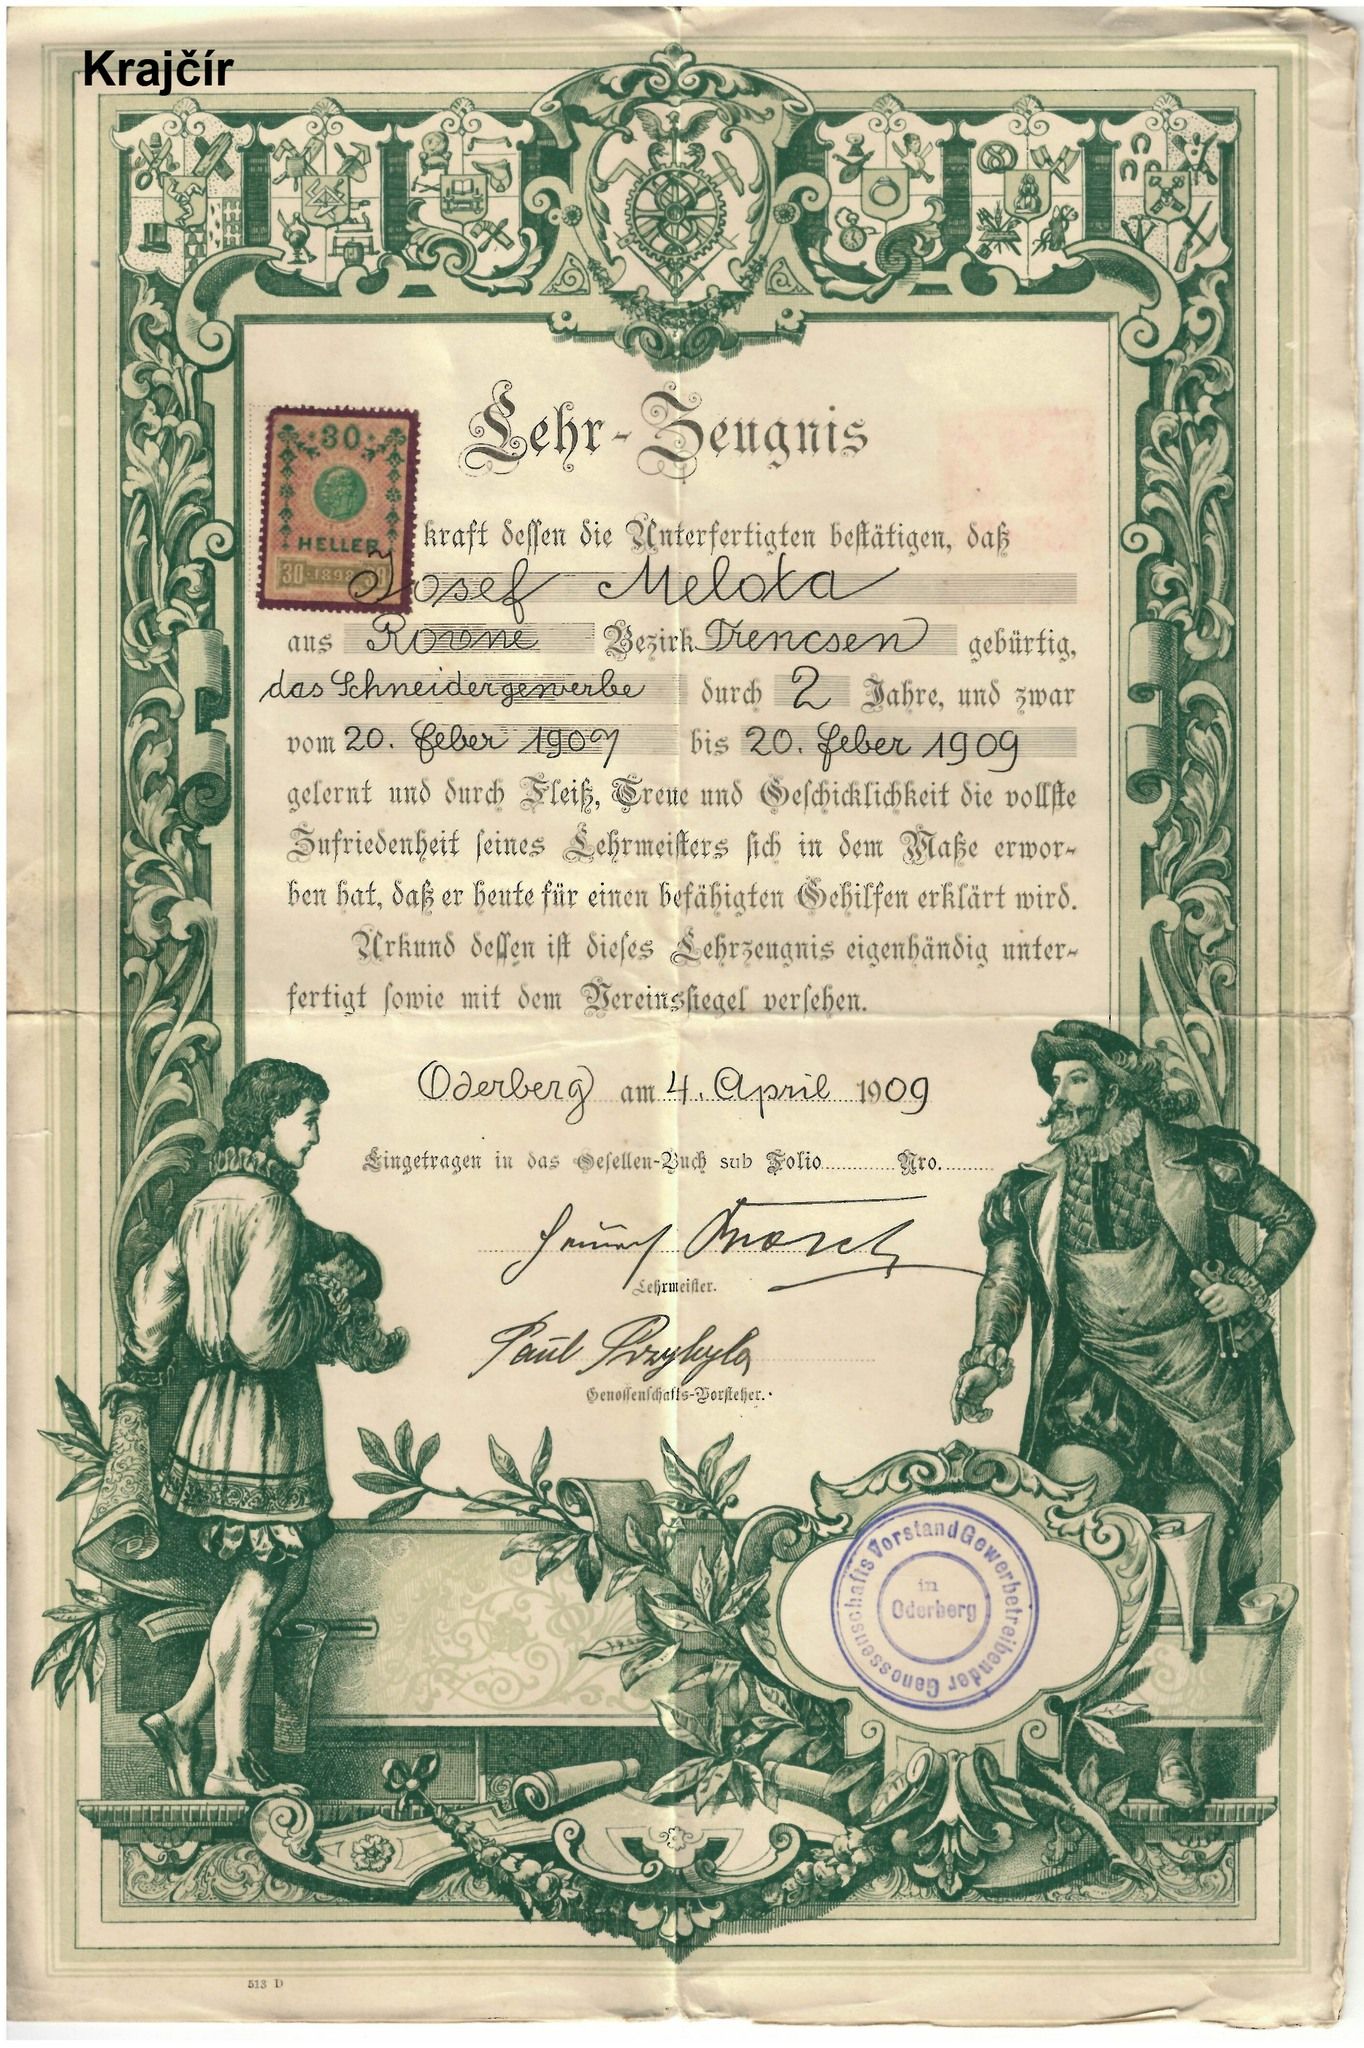 Krajčír
Lehr-Zeugnis
30
HELLER
30 1898
kraft dessen die Unterfertigten bestätigen, daß
Josef Melota
aus Rovne Bezirk Trencsen gebürtig,
das Schneidergewerbe durch 2 Jahre, und zwar
vom 20. feber 1907 bis 20. feber 1909
gelernt und durch Fleiß, Treue und Geschicklichkeit die vollste
Zufriedenheit seines Lehrmeisters sich in dem Maße erwor-
ben hat, daß er heute für einen befähigten Gehilfen erklärt wird.
Urkund dessen ist dieses Lehrzeugnis eigenhändig unter-
fertigt sowie mit dem Vereinssiegel versehen.
Oderberg am 4. April 1909
Eingetragen in das Gesellen-Buch sub Folio Nro.
Lehrmeister.
Paul Przybyla
Genossenschafts-Vorsteher.
Genossenschafts Vorstand Gewerbetreibender
in
Oderberg
513 D